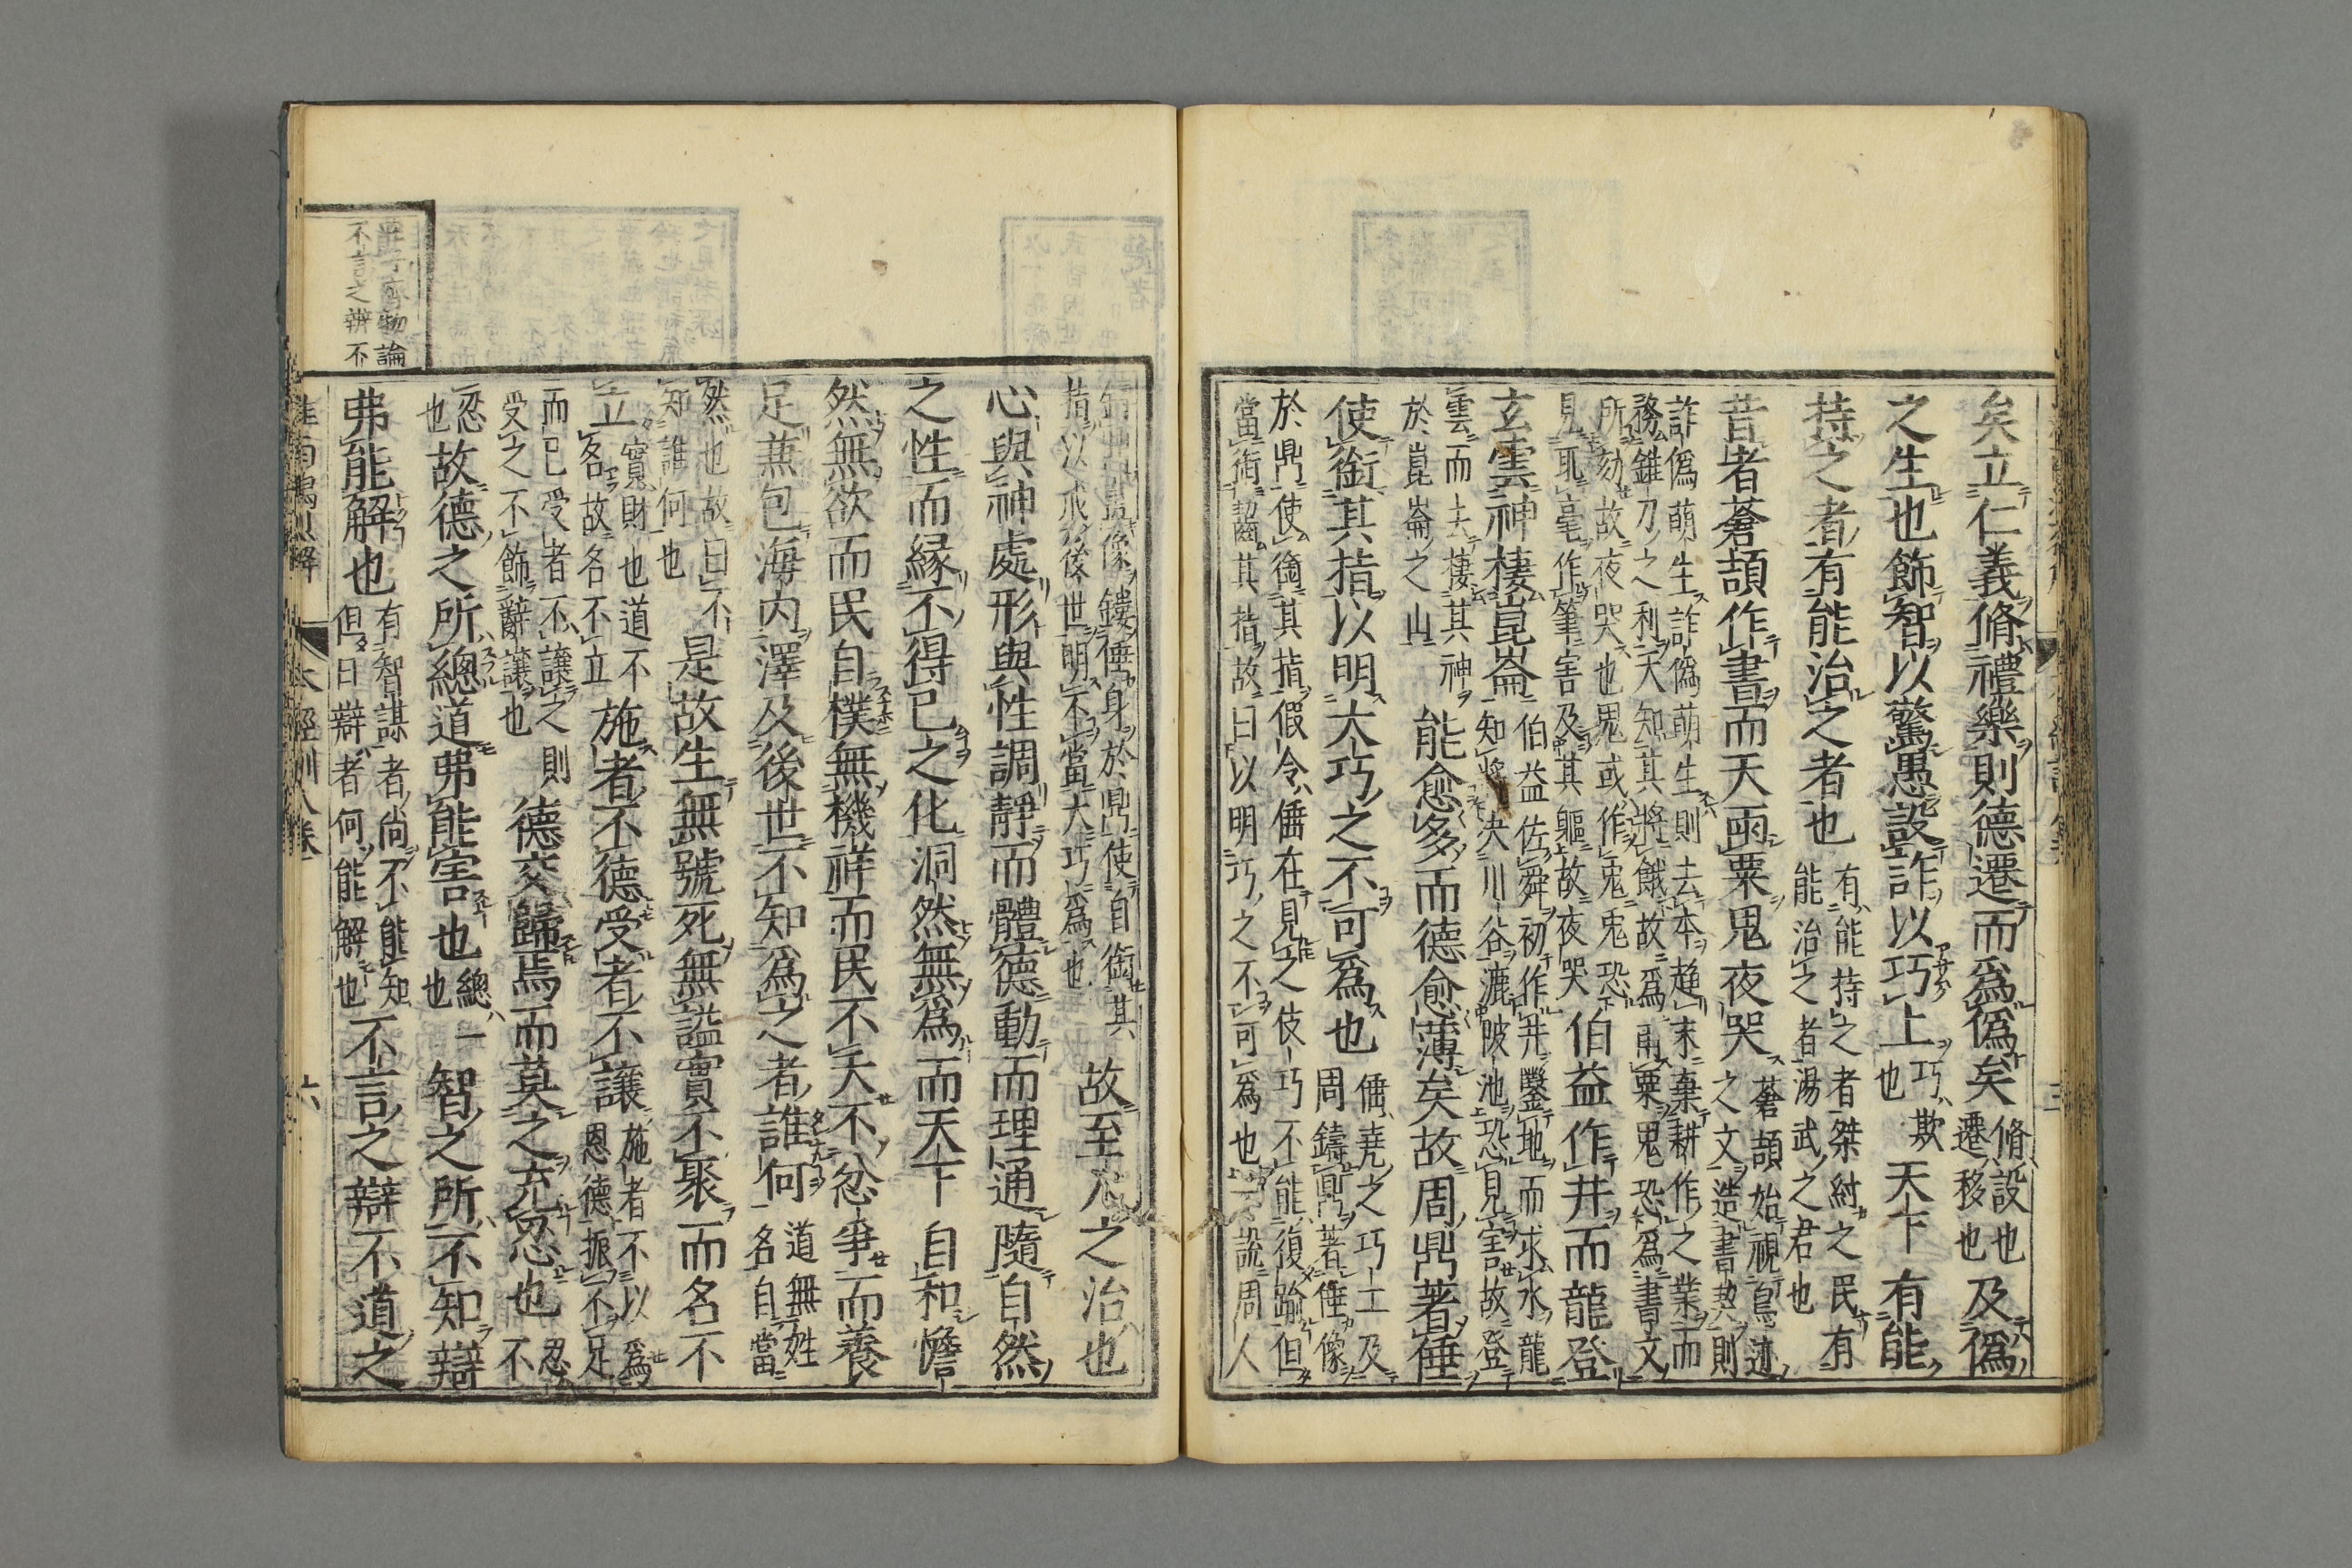 矣立仁義脩禮樂則德遷而爲僞矣脩設也遷移也及僞
之生也飾智以驚愚設詐以巧上巧欺也天下有能
持之者有能治之者也有能持之者桀紂之民有能治之者湯武之君也
昔者蒼頡作書而天雨粟鬼夜哭蒼頡始視鳥迹之文造書契則
詐僞萌生詐僞萌生則去本趨末棄耕作之業而務錐刀之利天知其將餓故爲雨粟鬼恐爲書文
所劾故夜哭也鬼或作兎兎恐見取毫作筆害及其軀故夜哭伯益作井而龍登
玄雲神棲崑崙伯益佐舜初作井鑿地而求水龍知將決川谷漉陂池恐見害故登
雲而去棲其神於崑崙之山能愈多而德愈薄矣故周鼎著倕
使銜其指以明大巧之不可爲也倕堯之巧工及周鑄鼎著倕像
於鼎使銜其指假令倕在見之伎巧不能復踰但當銜齧其指故曰以明巧之不可爲也一說周人
鑄鼎畫像鏤倕身於鼎使自銜其指以戒後世明不當大巧爲也故至人之治也
心與神處形與性調靜而體德動而理通隨自然
之性而縁不得已之化洞然無爲而天下自和憺
然無欲而民自樸無機祥而民不夭不忿爭而養
足兼包海内澤及後世不知爲之者誰何道無姓名自當
然也故曰不知誰何也是故生無號死無謚實不聚而名不
立實財也道不名故名不立施者不德受者不讓施者不以爲恩德振不足
而已受者不讓之則受之不飾辭讓也德交歸焉而莫之充忍也忍不
忍也故德之所總道弗能害也總一也智之所不知辯
弗能解也有智謀者尚不能知但曰辯者何能解也不言之辯不道之
淮南鴻烈解 本經訓八卷 六
莊子齊物論
不言之辨不